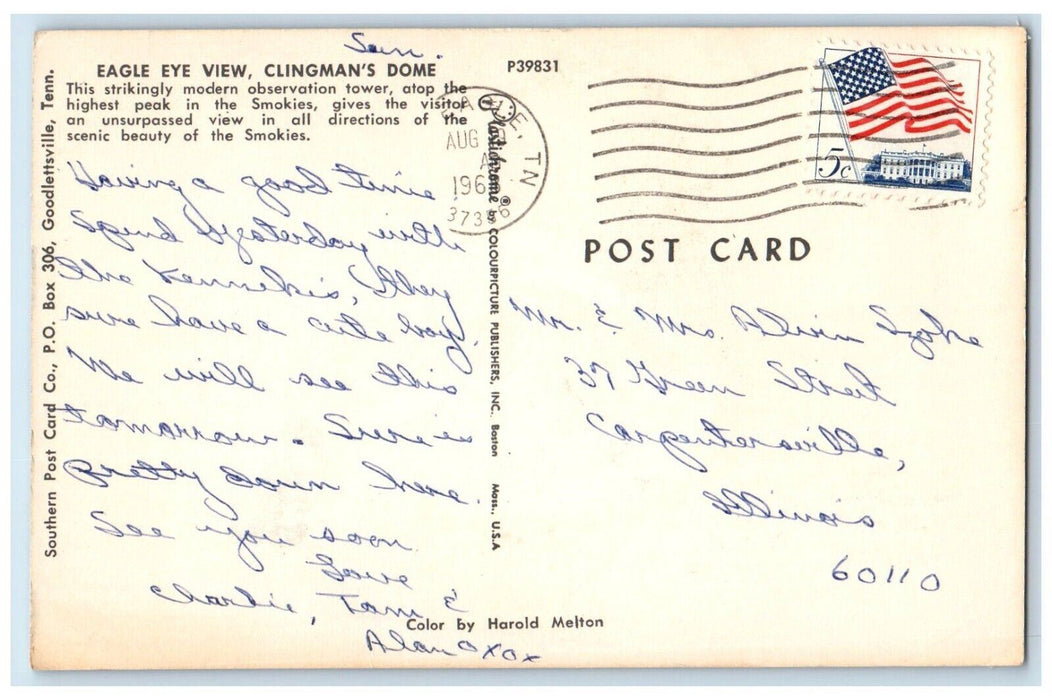 Sun.
EAGLE EYE VIEW, CLINGMAN'S DOME
This strikingly modern observation tower, atop the
highest peak in the Smokies, gives the visitor
an unsurpassed view in all directions of the
scenic beauty of the Smokies.
Having a good time
Spend Yesterday with
the they
sure have a cute boy.
We will see this
tomorrow. Sure is
pretty down here.
See you soon
Love
Charlie, Tam &
Alan OXOX
Southern Post Card Co., P.O. Box 306, Goodlettsville, Tenn.
P39831
TN
AUG
196
Plastichrome ® by COLOURPICTURE PUBLISHERS, INC. Boston Mass., U.S.A
5c
POST CARD
Mr. & Mrs. Alvin Szoke
37 Green Street
Carpentersville,
Illinois
60110
Color by Harold Melton